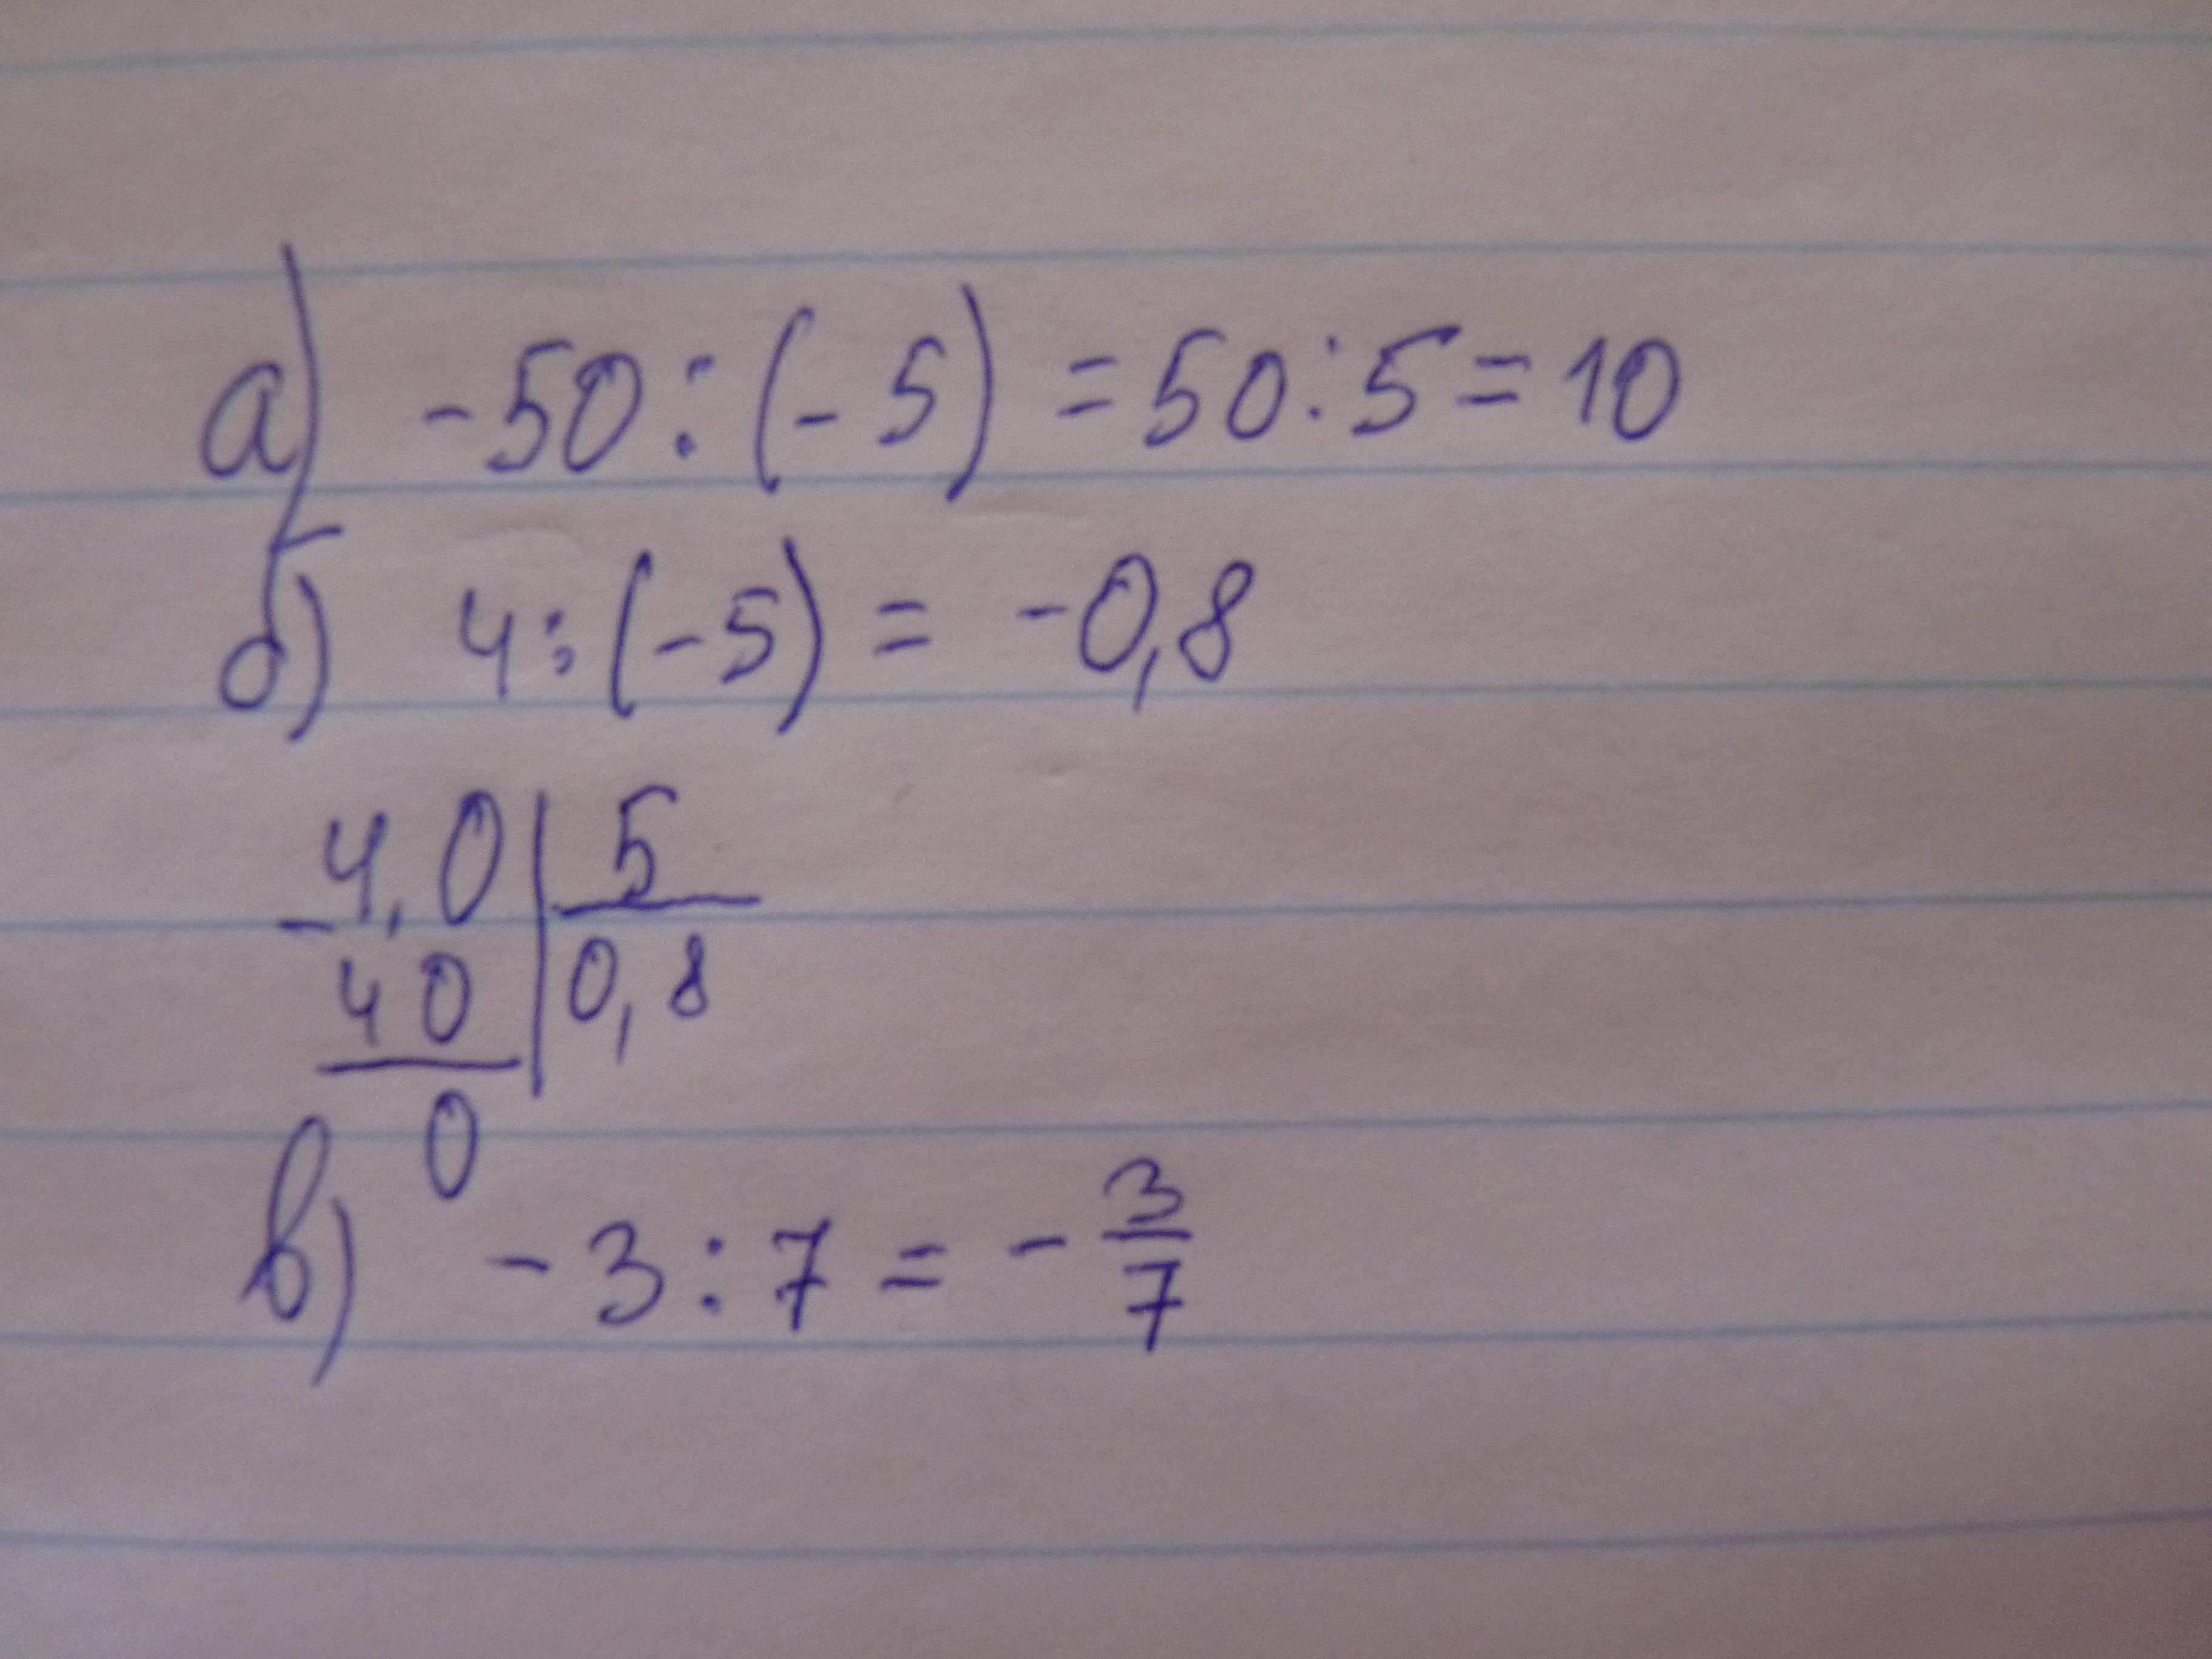 а) -50:(-5) = 50:5 = 10
б) 4:(-5) = -0,8
-4,0|5
40|0,8
0
в) -3:7 = -3/7